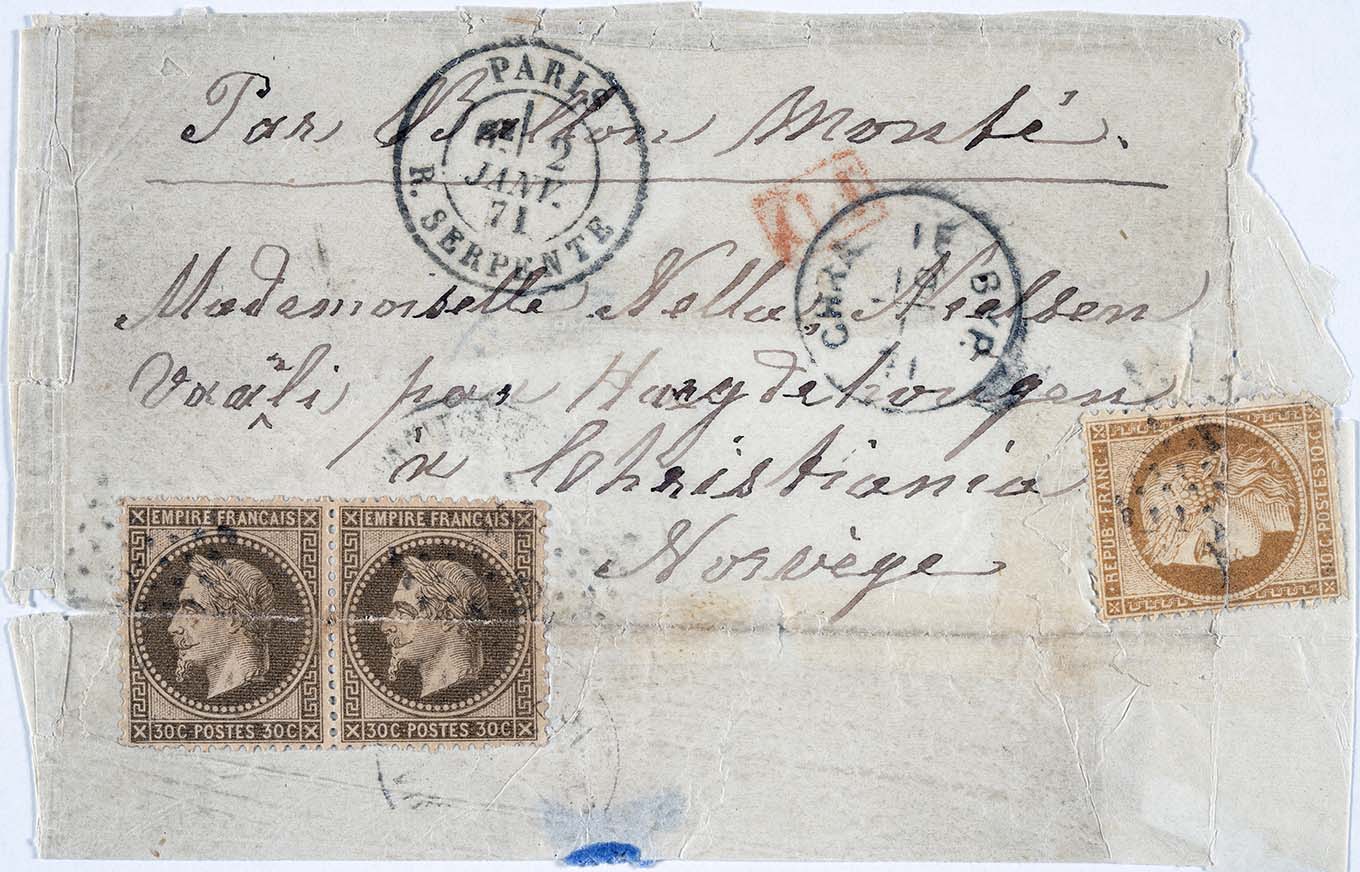 Par Ballon Monté.
PARIS
2
JANV.
71
R. SERPENTE
CHRA
BYP.
Mademoiselle Nella Nielsen
par
à Christiania
Norvège
EMPIRE FRANÇAIS
30C POSTES 30C
EMPIRE FRANÇAIS
30C POSTES 30C
REPUB. FRANC.
10.C. POSTES 10.C